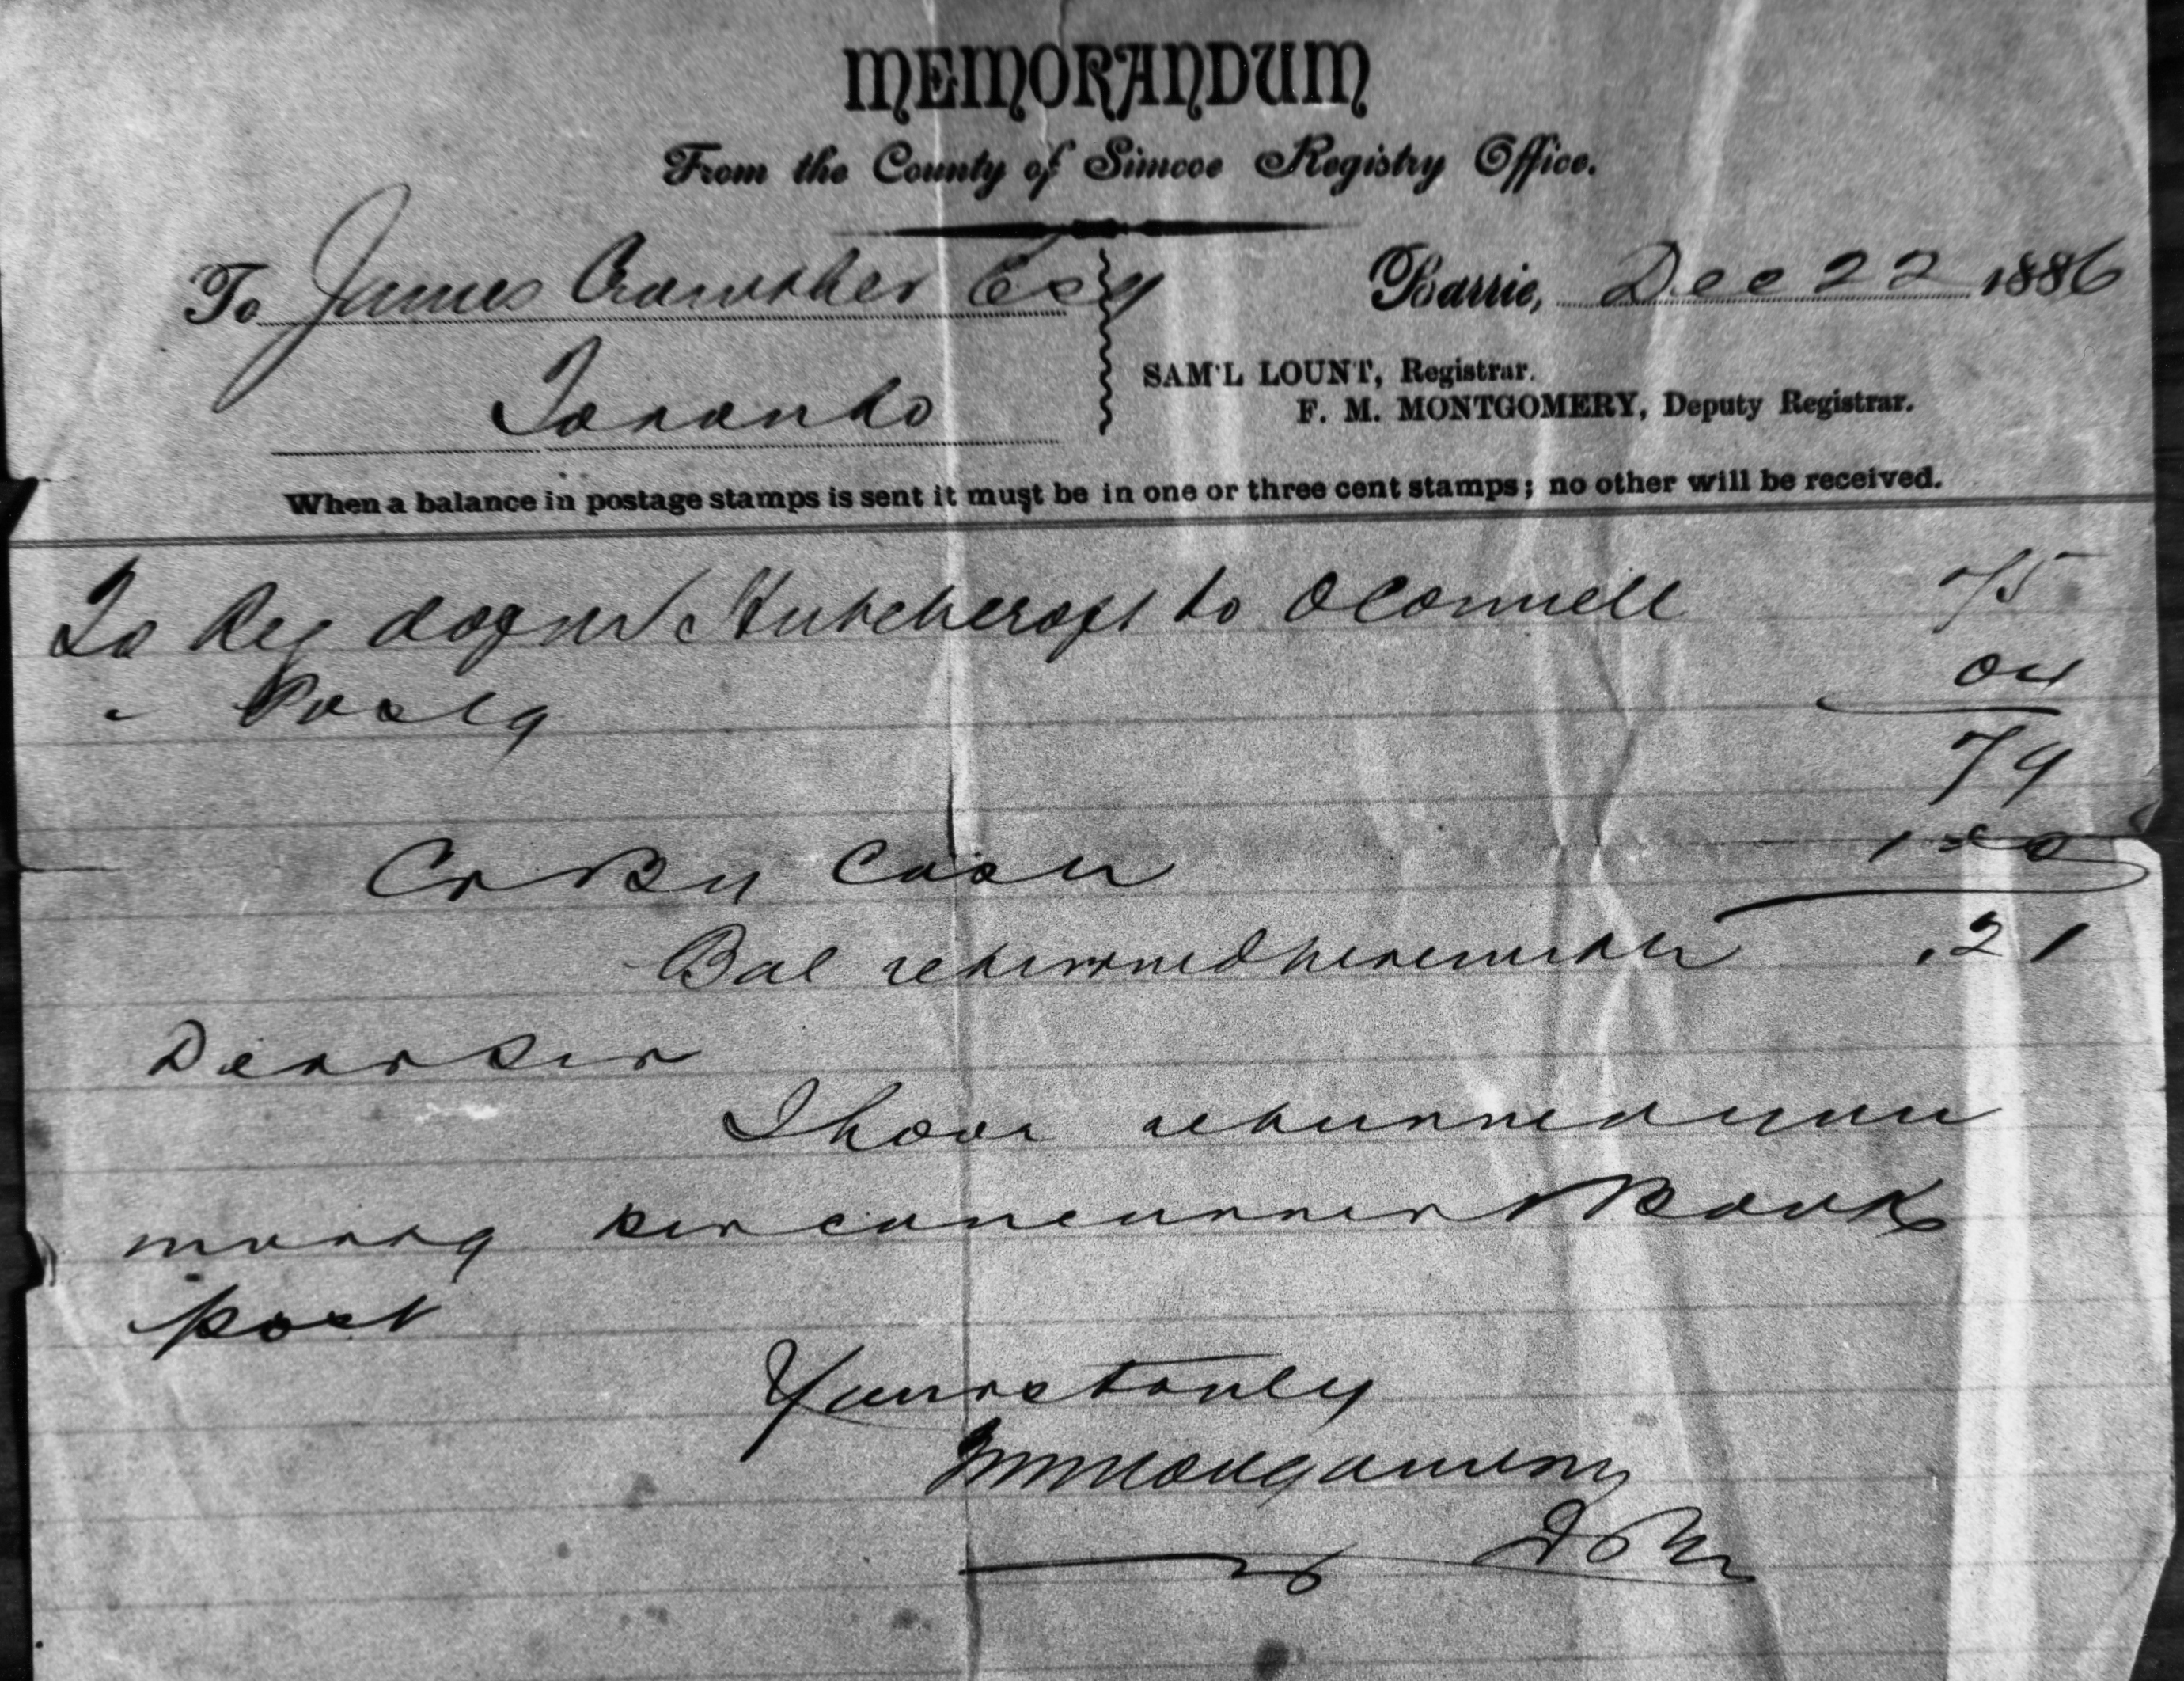 MEMORANDUM
From the County of Simcoe Registry Office.
To James Crowther Esq
Barrie, Dec 22 1886
Toronto
SAM'L LOUNT, Registrar.
F. M. MONTGOMERY, Deputy Registrar.
When a balance in postage stamps is sent it must be in one or three cent stamps; no other will be received.
To Reg Hutchcroft to OConnell 75
" Postg 04
79
Cr By Cash 1 00
Bal returned herewith .21
Dear Sir
I have returned your
mortg per concurrent Book
post
Yours truly
FMMontgomery
D R